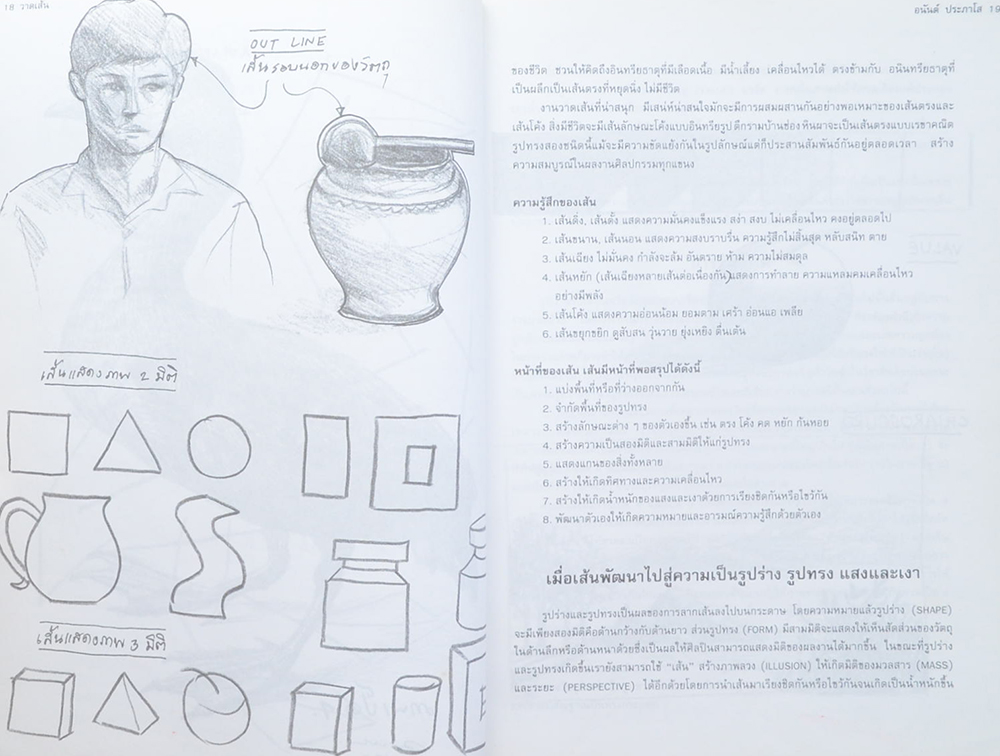 18 วาดเส้น
OUT LINE
เส้นรอบนอกของวัตถุ
เส้นแสดงภาพ 2 มิติ
เส้นแสดงภาพ 3 มิติ
อนันต์ ประภาโส 19
ของชีวิต ชวนให้คิดถึงอินทรียธาตุที่มีเลือดเนื้อ มีน้ำเลี้ยง เคลื่อนไหวได้ ตรงข้ามกับ อนินทรียธาตุที่
เป็นผลึกเป็นเส้นตรงที่หยุดนิ่ง ไม่มีชีวิต
งานวาดเส้นที่น่าสนุก มีเสน่ห์น่าสนใจมักจะมีการผสมผสานกันอย่างพอเหมาะของเส้นตรงและ
เส้นโค้ง สิ่งมีชีวิตจะมีเส้นลักษณะโค้งแบบอินทรียรูป ตึกรามบ้านช่อง หินผาจะเป็นเส้นตรงแบบเรขาคณิต
รูปทรงสองชนิดนี้แม้จะมีความขัดแย้งกันในรูปลักษณ์แต่ก็ประสานสัมพันธ์กันอยู่ตลอดเวลา สร้าง
ความสมบูรณ์ในผลงานศิลปกรรมทุกแขนง
ความรู้สึกของเส้น
1. เส้นดิ่ง, เส้นตั้ง แสดงความมั่นคงแข็งแรง สง่า สงบ ไม่เคลื่อนไหว คงอยู่ตลอดไป
2. เส้นขนาน, เส้นนอน แสดงความสงบราบรื่น ความรู้สึกไม่สิ้นสุด หลับสนิท ตาย
3. เส้นเฉียง ไม่มั่นคง กำลังจะล้ม อันตราย ห้าม ความไม่สมดุล
4. เส้นหยัก (เส้นเฉียงหลายเส้นต่อเนื่องกัน)แสดงการทำลาย ความแหลมคมเคลื่อนไหว
อย่างมีพลัง
5. เส้นโค้ง แสดงความอ่อนน้อม ยอมตาม เศร้า อ่อนแอ เพลีย
6. เส้นขยุกขยิก ดูสับสน วุ่นวาย ยุ่งเหยิง ตื่นเต้น
หน้าที่ของเส้น เส้นมีหน้าที่พอสรุปได้ดังนี้
1. แบ่งพื้นที่หรือที่ว่างออกจากกัน
2. จำกัดพื้นที่ของรูปทรง
3. สร้างลักษณะต่าง ๆ ของตัวเองขึ้น เช่น ตรง โค้ง คด หยัก ก้นหอย
4. สร้างความเป็นสองมิติและสามมิติให้แก่รูปทรง
5. แสดงแกนของสิ่งทั้งหลาย
6. สร้างให้เกิดทิศทางและความเคลื่อนไหว
7. สร้างให้เกิดน้ำหนักของแสงและเงาด้วยการเรียงชิดกันหรือไขว้กัน
8. พัฒนาตัวเองให้เกิดความหมายและอารมณ์ความรู้สึกด้วยตัวเอง
เมื่อเส้นพัฒนาไปสู่ความเป็นรูปร่าง รูปทรง แสงและเงา
รูปร่างและรูปทรงเป็นผลของการลากเส้นลงไปบนกระดาษ โดยความหมายแล้วรูปร่าง (SHAPE)
จะมีเพียงสองมิติคือด้านกว้างกับด้านยาว ส่วนรูปทรง (FORM) มีสามมิติจะแสดงให้เห็นสัดส่วนของวัตถุ
ในด้านลึกหรือด้านหนาด้วยซึ่งเป็นผลให้ศิลปินสามารถแสดงมิติของผลงานได้มากขึ้น ในขณะที่รูปร่าง
และรูปทรงเกิดขึ้นเรายังสามารถใช้ "เส้น" สร้างภาพลวง (ILLUSION) ให้เกิดมิติของมวลสาร (MASS)
และระยะ (PERSPECTIVE) ได้อีกด้วยโดยการนำเส้นมาเรียงชิดกันหรือไขว้กันจนเกิดเป็นน้ำหนักขึ้น